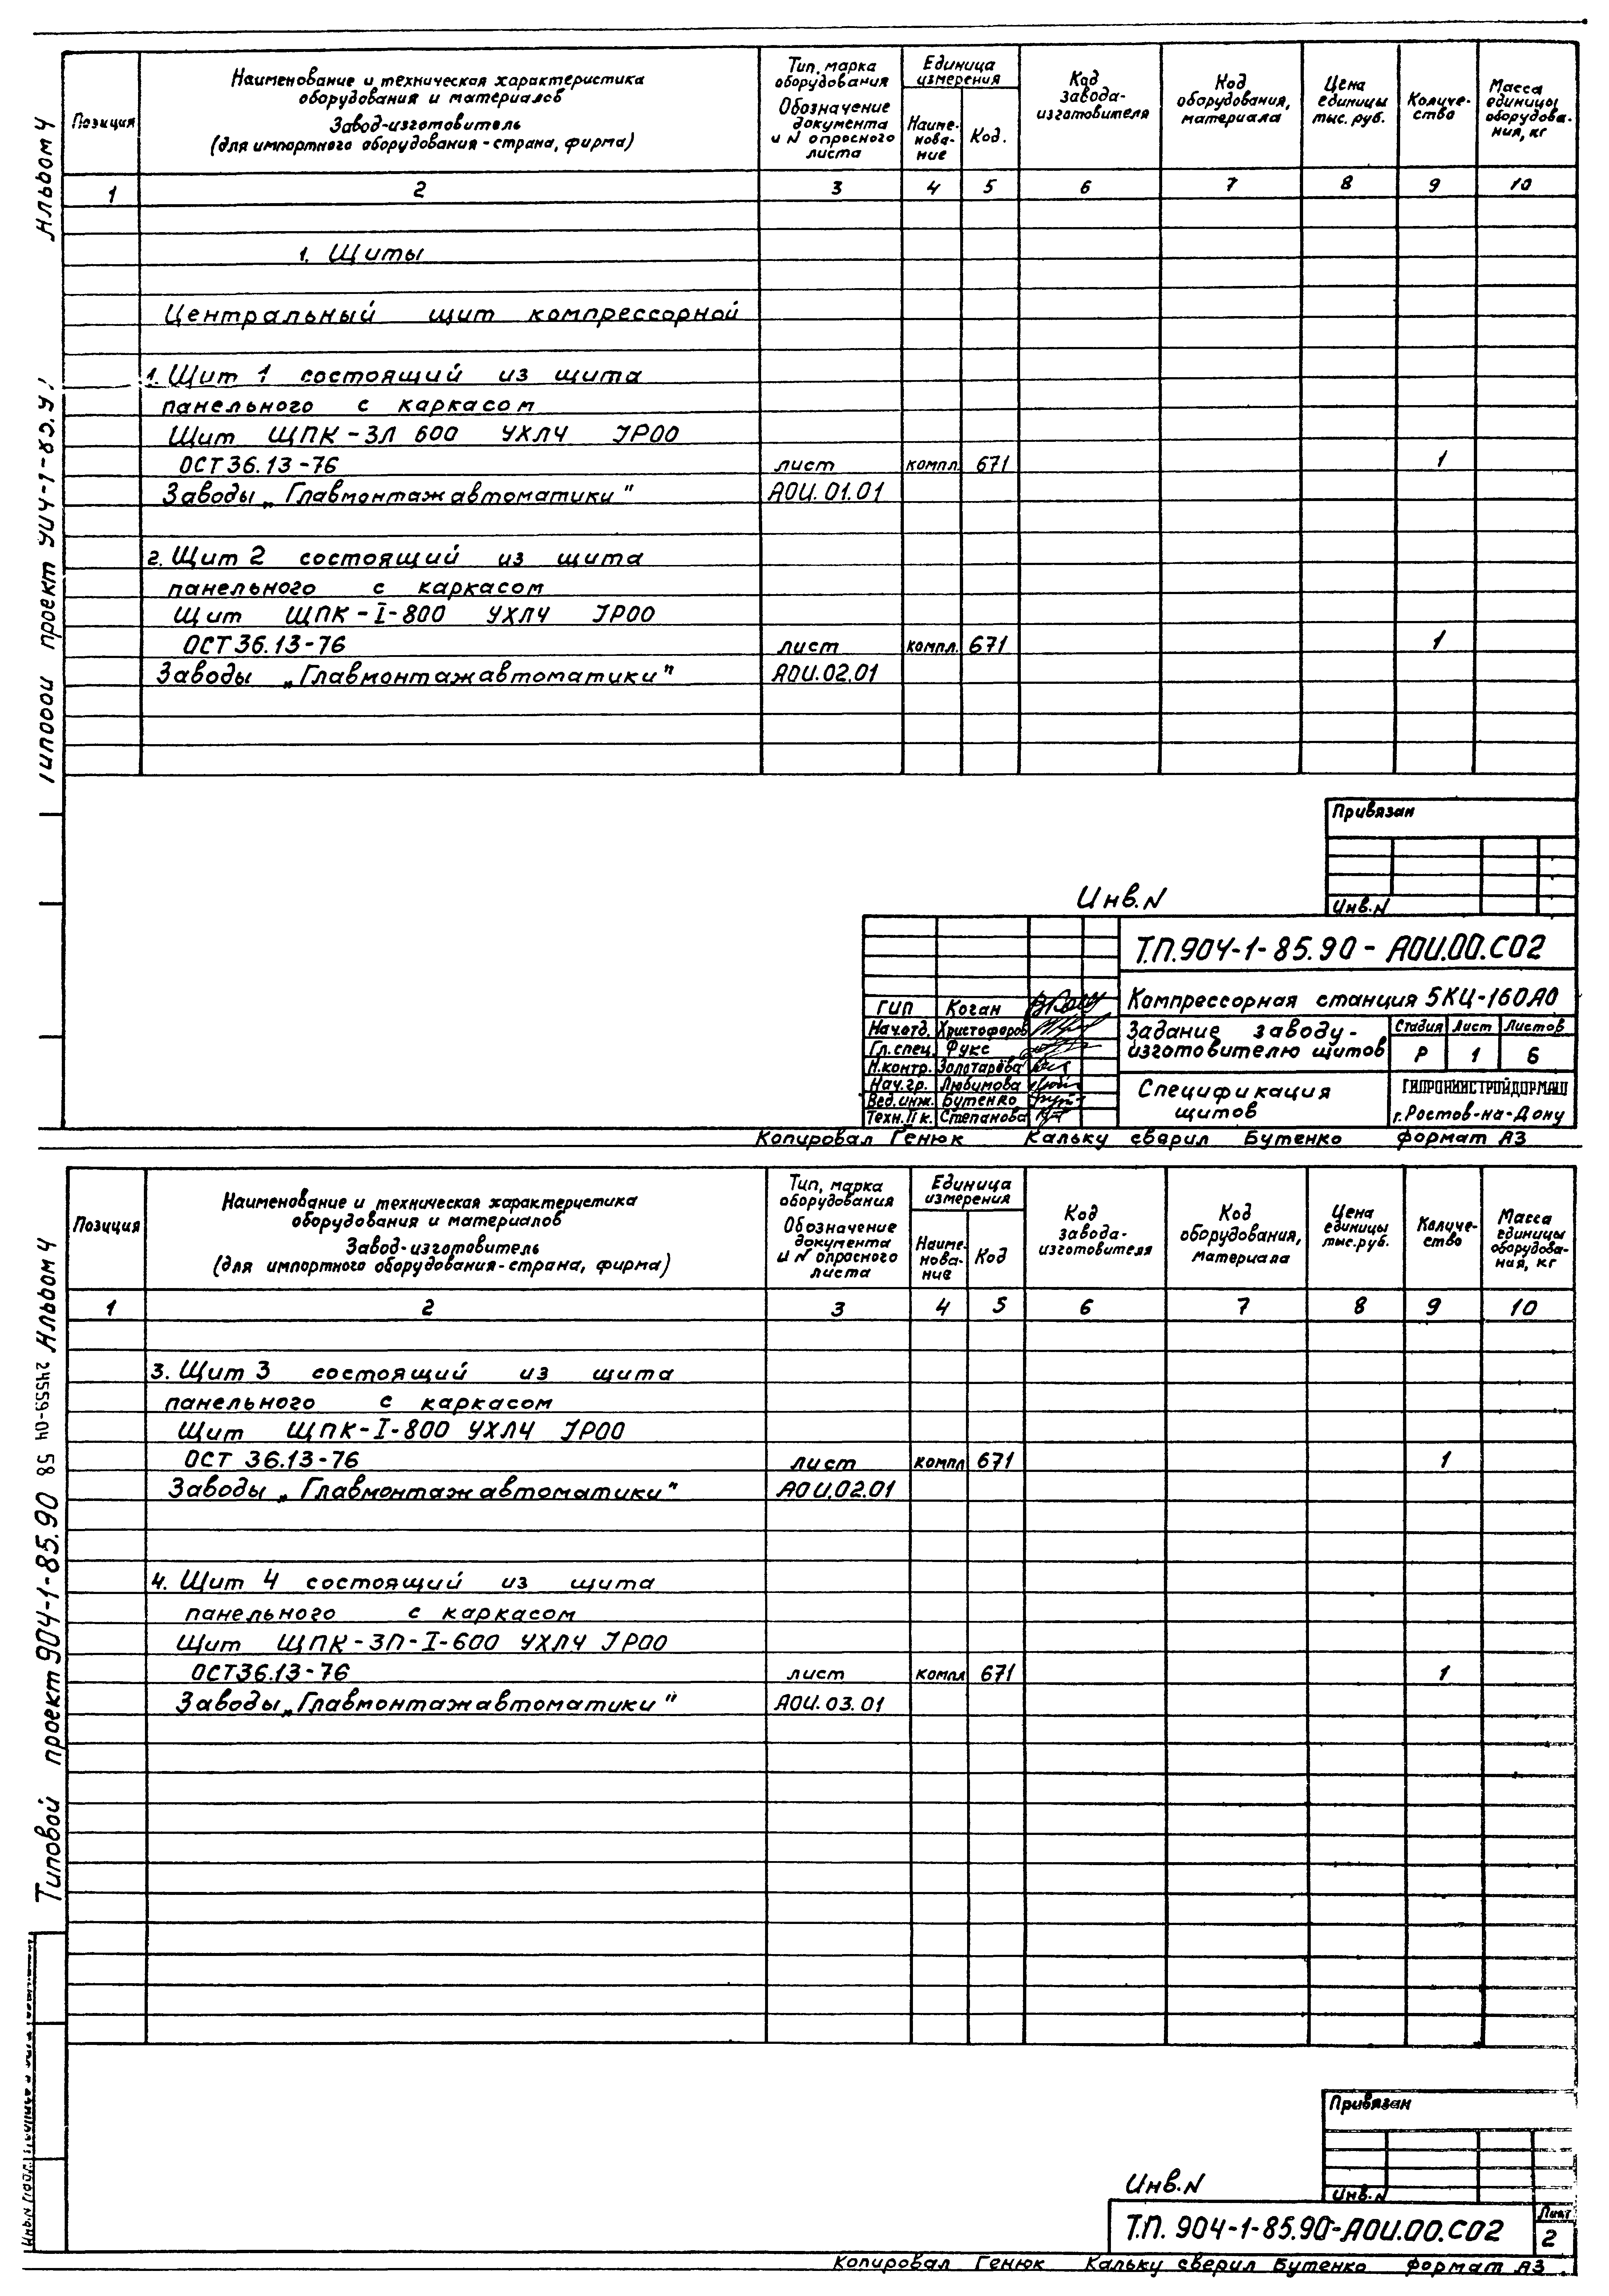 Альбом 4
Позиция
Наименование и техническая характеристика
оборудования и материалов
Завод-изготовитель
(для импортного оборудования - страна, фирма)
Тип, марка
оборудования
Обозначение
документа
и N опросного
листа
Единица
измерения
Наиме-
нова-
ние
Код.
Код
завода-
изготовителя
Код
оборудования,
материала
Цена
единицы
тыс. руб.
Количе-
ство
Масса
единицы
оборудова-
ния, кг
1 2 3 4 5 6 7 8 9 10
1. Щиты
Центральный щит компрессорной
1. Щит 1 состоящий из щита
панельного с каркасом
Щит ЩПК-ЗЛ 600 УХЛЧ JP00
ОСТ 36.13-76 лист компл. 671 1
Заводы „Главмонтажавтоматики" АОИ.01.01
2. Щит 2 состоящий из щита
панельного с каркасом
Щит ЩПК-I-800 УХЛЧ JP00
ОСТ 36.13-76 лист компл. 671 1
Заводы „Главмонтажавтоматики" АОИ.02.01
проект
Привязан
Инв.N
Инв.N
Т.П.904-1-85.90- АОИ.00.СО2
ГИП Коган
Компрессорная станция 5КЦ-160А0
Нач.отд. Христофоров
Гл.спец. Фукс
Н.контр. Золотарёва
Нач.гр. Любимова
Вед.инж. Бутенко
Техн.IIк. Степанова
Задание заводу-
изготовителю щитов
Стадия Лист Листов
Р 1 6
Спецификация
щитов
ГИПРОНИИСТРОЙДОРМАШ
г.Ростов-на-Дону
Копировал Генюк Кальку сверил Бутенко формат А3
Позиция
Наименование и техническая характеристика
оборудования и материалов
Завод-изготовитель
(для импортного оборудования-страна, фирма)
Тип, марка
оборудования
Обозначение
документа
и N опросного
листа
Единица
измерения
Наиме-
нова-
ние
Код
Код
завода-
изготовителя
Код
оборудования,
материала
Цена
единицы
тыс.руб.
Количе-
ство
Масса
единицы
оборудова-
ния, кг
1 2 3 4 5 6 7 8 9 10
3. Щит 3 состоящий из щита
панельного с каркасом
Щит ЩПК-I-800 УХЛЧ JP00
ОСТ 36.13-76 лист компл 671 1
Заводы „Главмонтажавтоматики" АОИ.02.01
4. Щит 4 состоящий из щита
панельного с каркасом
Щит ЩПК-ЗП-I-600 УХЛЧ JP00
ОСТ36.13-76 лист компл 671 1
Заводы „Главмонтажавтоматики" АОИ.03.01
Типовой проект 904-1-85.90 58 24559-04 Альбом 4
Привязан
Инв.N
Инв.N
Т.П. 904-1-85.90-АОИ.00.СО2
Лист
2
Копировал Генюк Кальку сверил Бутенко формат А3